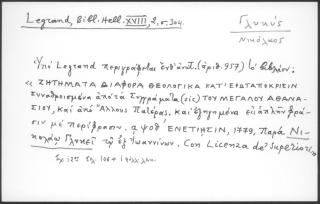 Legrand, Bibl. Hell. XVIII, 2, σ. 304.
Γλυκύς
Νικόλαος
Ὑπὸ Legrand περιγράφεται ἐνθ' ἀνωτ. (ἀριθ. 957) τὸ βιβλίον:
« ΖΗΤΗΜΑΤΑ ΔΙΑΦΟΡΑ ΘΕΟΛΟΓΙΚΑ ΚΑΤ' ΕΡΩΤΑΠΟΚΡΙΣΙΝ
ΣΥΝΑΘΡΟΙΣΜΕΝΑ ΑΠΟ ΤΑ ΣΥΓΓΡΑΜΑΤΑ (sic) ΤΟΥ ΜΕΓΑΛΟΥ ΑΘΑΝΑ-
ΣΙΟΥ, καὶ ἀπὸ Ἄλλους Πατέρας, καὶ ἐξηγημένα εἰς ἁπλῆν φρά-
σιν μὲ περίφρασιν. αψοθ' ΕΝΕΤΙΗΣΙΝ, 1779, παρὰ Νι-
κολάῳ Γλυκεῖ τῷ ἐξ Ἰωαννίνων. Con Licenza de' Superiori»